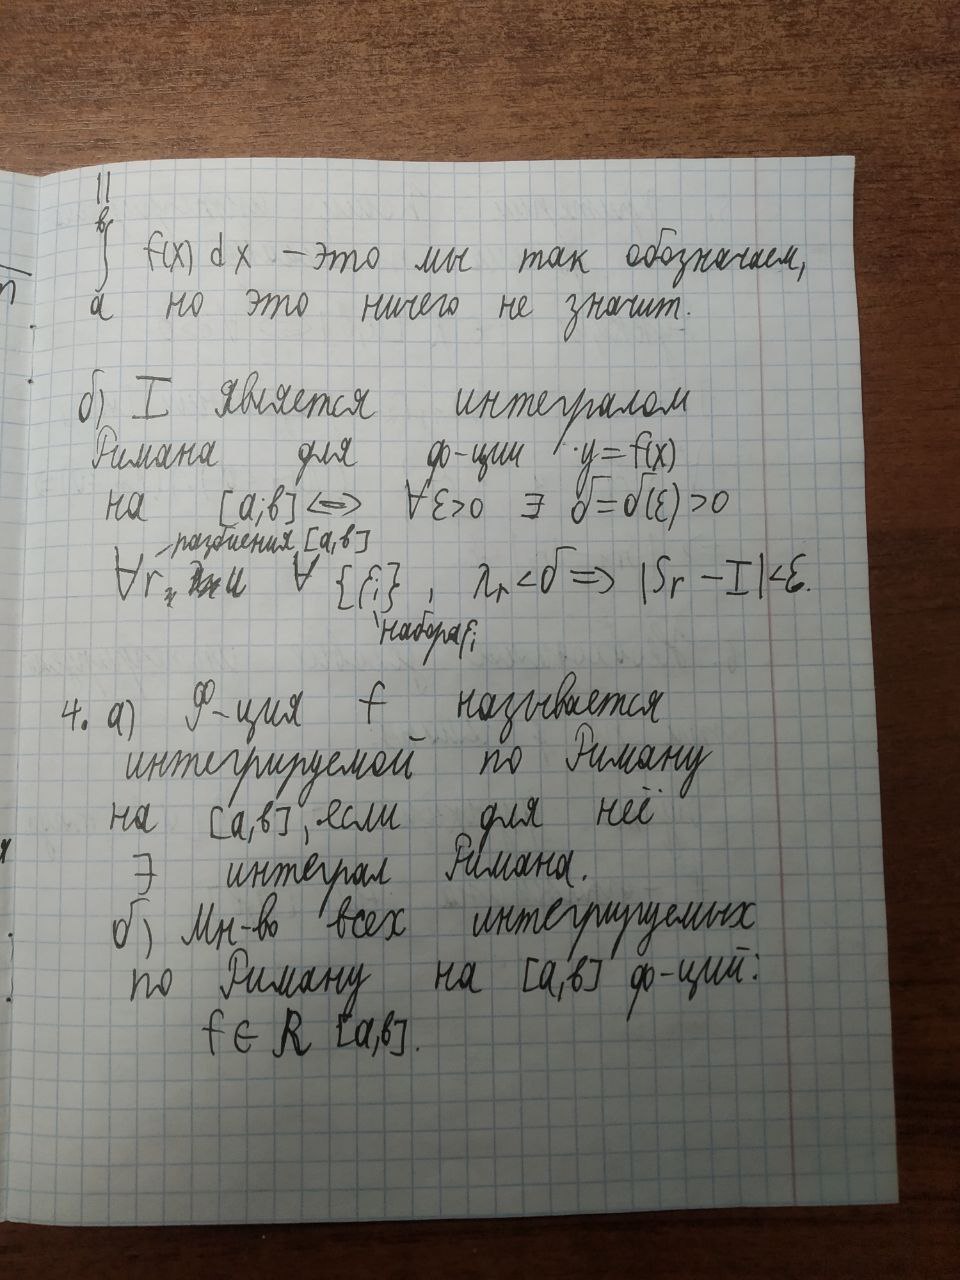 ||
b
∫ f(x) dx – это мы так обозначаем,
a но это ничего не значит.
б) I является интегралом
Римана для ф-ции y = f(x)
на [a;b] <=> ∀ε>0 ∃ δ=δ(ε)>0
разбиения [a,b]
∀r и ∀ {ξi}, λr<δ => |Sr – I|<ε.
набора ξi
4. а) Ф-ция f называется
интегрируемой по Риману
на [a,b], если для неё
∃ интеграл Римана.
б) Мн-во всех интегрируемых
по Риману на [a,b] ф-ций:
f ∈ R [a,b].